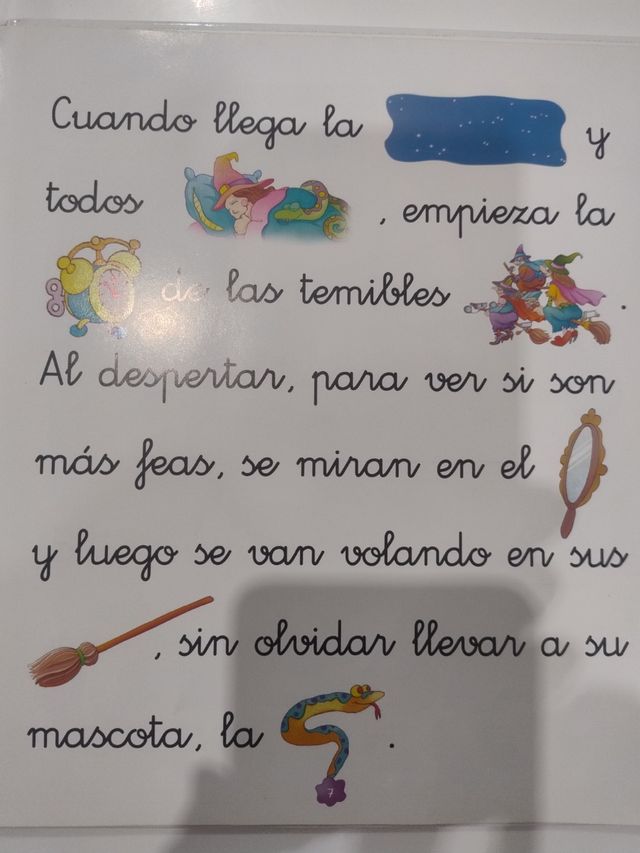 Cuando llega la y
todos , empieza la
de las temibles .
Al despertar, para ver si son
más feas, se miran en el
y luego se van volando en sus
, sin olvidar llevar a su
mascota, la .
7